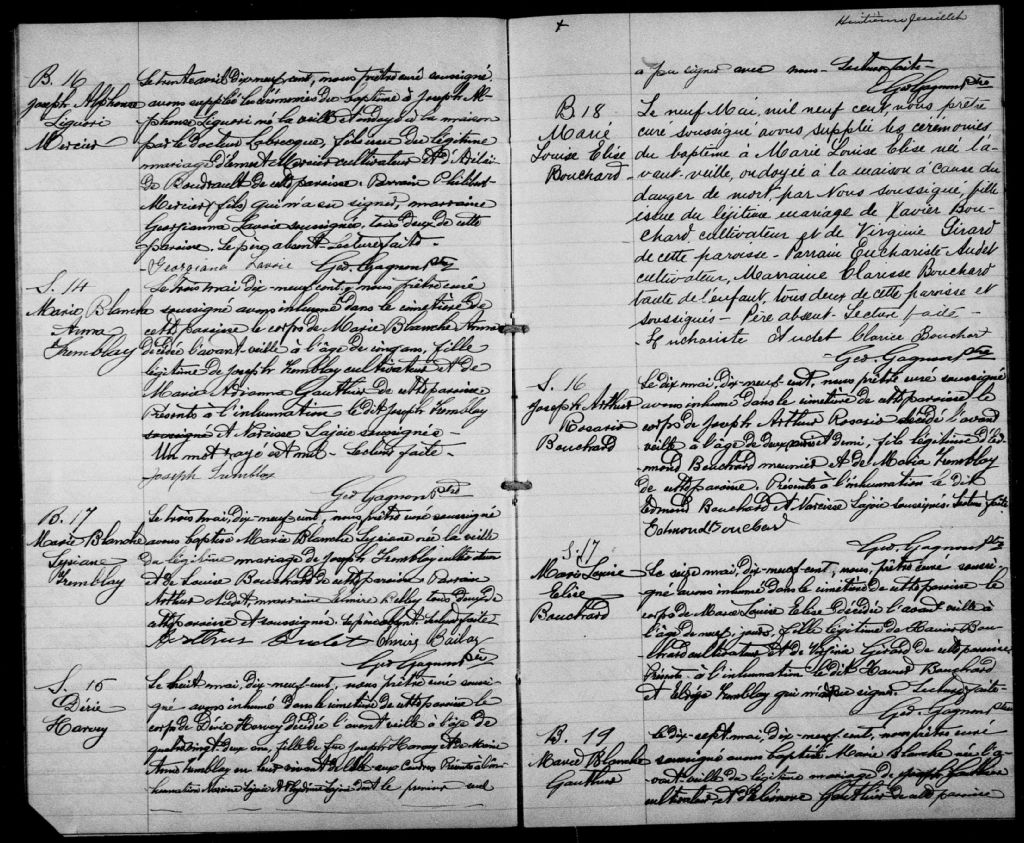 Huitième feuillet
B. 16
Joseph Alphonse
Liguori
Mercier
Le trente avril, dix-neuf-cent, nous prêtre curé soussigné
avons suppléé les cérémonies du baptême à Joseph Al-
phonse Liguori né la veille et ondoyé à la maison
par le docteur Labrecque, fils issu du légitime
mariage d'Elément Mercier cultivateur et d'
de Boudreault de cette paroisse. Parrain
Mercier (fils) qui n'a su signer, marraine
Georgianna Lavoie soussignée, tous deux de cette
paroisse. Le père absent. Lecture faite.
Georgiana Lavoie Geo. Gagnon Ptre
S. 14
Marie Blanche
Anna
Tremblay
Le trois mai dix-neuf-cent, nous prêtre curé
soussigné avons inhumé dans le cimetière de
cette paroisse le corps de Marie Blanche Anna
décédée l'avant veille à l'âge de cinq ans, fille
légitime de Joseph Tremblay cultivateur et de
Marie Gauthier de cette paroisse
Présents à l'inhumation le dit Joseph Tremblay
soussigné et Narcisse Lajoie soussignés -
Un mot rayé est nul - Lecture faite -
Joseph Tremblay
Geo. Gagnon Ptre
B. 17
Marie Blanche
Lysiane
Tremblay
Le trois mai, dix-neuf-cent, nous prêtre curé soussigné
avons baptisé Marie Blanche Lysiane née la veille
du légitime mariage de Joseph Tremblay cultivateur
et de Louise Bouchard de cette paroisse Parrain
Arthur Audet, marraine tous deux de
cette paroisse et soussignés. Le père absent. Lecture faite
Arthur Audet Elmire
Geo. Gagnon Ptre
S. 15
Dérie
Harvey
Le huit mai, dix-neuf-cent, nous prêtre curé soussi-
gné avons inhumé dans le cimetière de cette paroisse le
corps de Dérie Harvey décédée l'avant veille à l'âge de
quatre vingt deux ans, fille de feu Joseph Harvey et de Marie
Anne Tremblay en leur vivant de l'Isle aux Coudres Présents à l'in-
humation Narcisse Lajoie et Lajoie dont le premier seul
a pu signer avec nous - Lecture faite -
Geo Gagnon Ptre
B. 18
Marie
Louise Elise
Bouchard
Le neuf Mai, mil neuf cent, nous prêtre
curé soussigné avons suppléé les cérémonies
du baptême à Marie Louise Elise née l'a-
vant-veille, ondoyée à la maison à cause du
danger de mort, par Nous soussigné, fille
issue du légitime mariage de Xavier Bou-
chard cultivateur et de Virginie Girard
de cette paroisse - Parrain Euchariste Audet
cultivateur, Marraine Clarisse Bouchard
tante de l'enfant, tous deux de cette paroisse et
soussignés - Père absent - Lecture faite -
Euchariste Audet Clarice Bouchar
Geo. Gagnon Ptre
S. 16
Joseph Arthur
Rosario
Bouchard
Le dix mai, dix-neuf-cent, nous prêtre curé soussigné
avons inhumé dans le cimetière de cette paroisse le
corps de Joseph Arthur Rosario décédé l'avant
veille à l'âge de deux ans et demi, fils légitime d'Ed-
mond Bouchard meunier et de Maria Tremblay
de cette paroisse. Présents à l'inhumation le dit
Edmond Bouchard et Narcisse Lajoie soussignés. Lecture faite
Edmond Bouchard
Geo. Gagnon Ptre
S. 17
Marie Louise
Elise
Bouchard
Le seize mai, dix-neuf-cent, nous, prêtre curé soussi-
gné avons inhumé dans le cimetière de cette paroisse le
corps de Marie Louise Elise décédée l'avant veille à
l'âge de neuf jours, fille légitime de Xavier Bou-
chard cultivateur et de Virginie Girard de cette paroisse
Présents à l'inhumation le dit Xavier Bouchard
et Tremblay qui n'ont su signer. Lecture faite -
Geo. Gagnon Ptre
B. 19
Marie Blanche
Gauthier
Le dix-sept mai, dix-neuf-cent, nous prêtre curé
soussigné avons baptisé Marie Blanche née l'a-
vant veille du légitime mariage de Joseph Gauthier
cultivateur et d'Eléonore Gauthier de cette paroisse